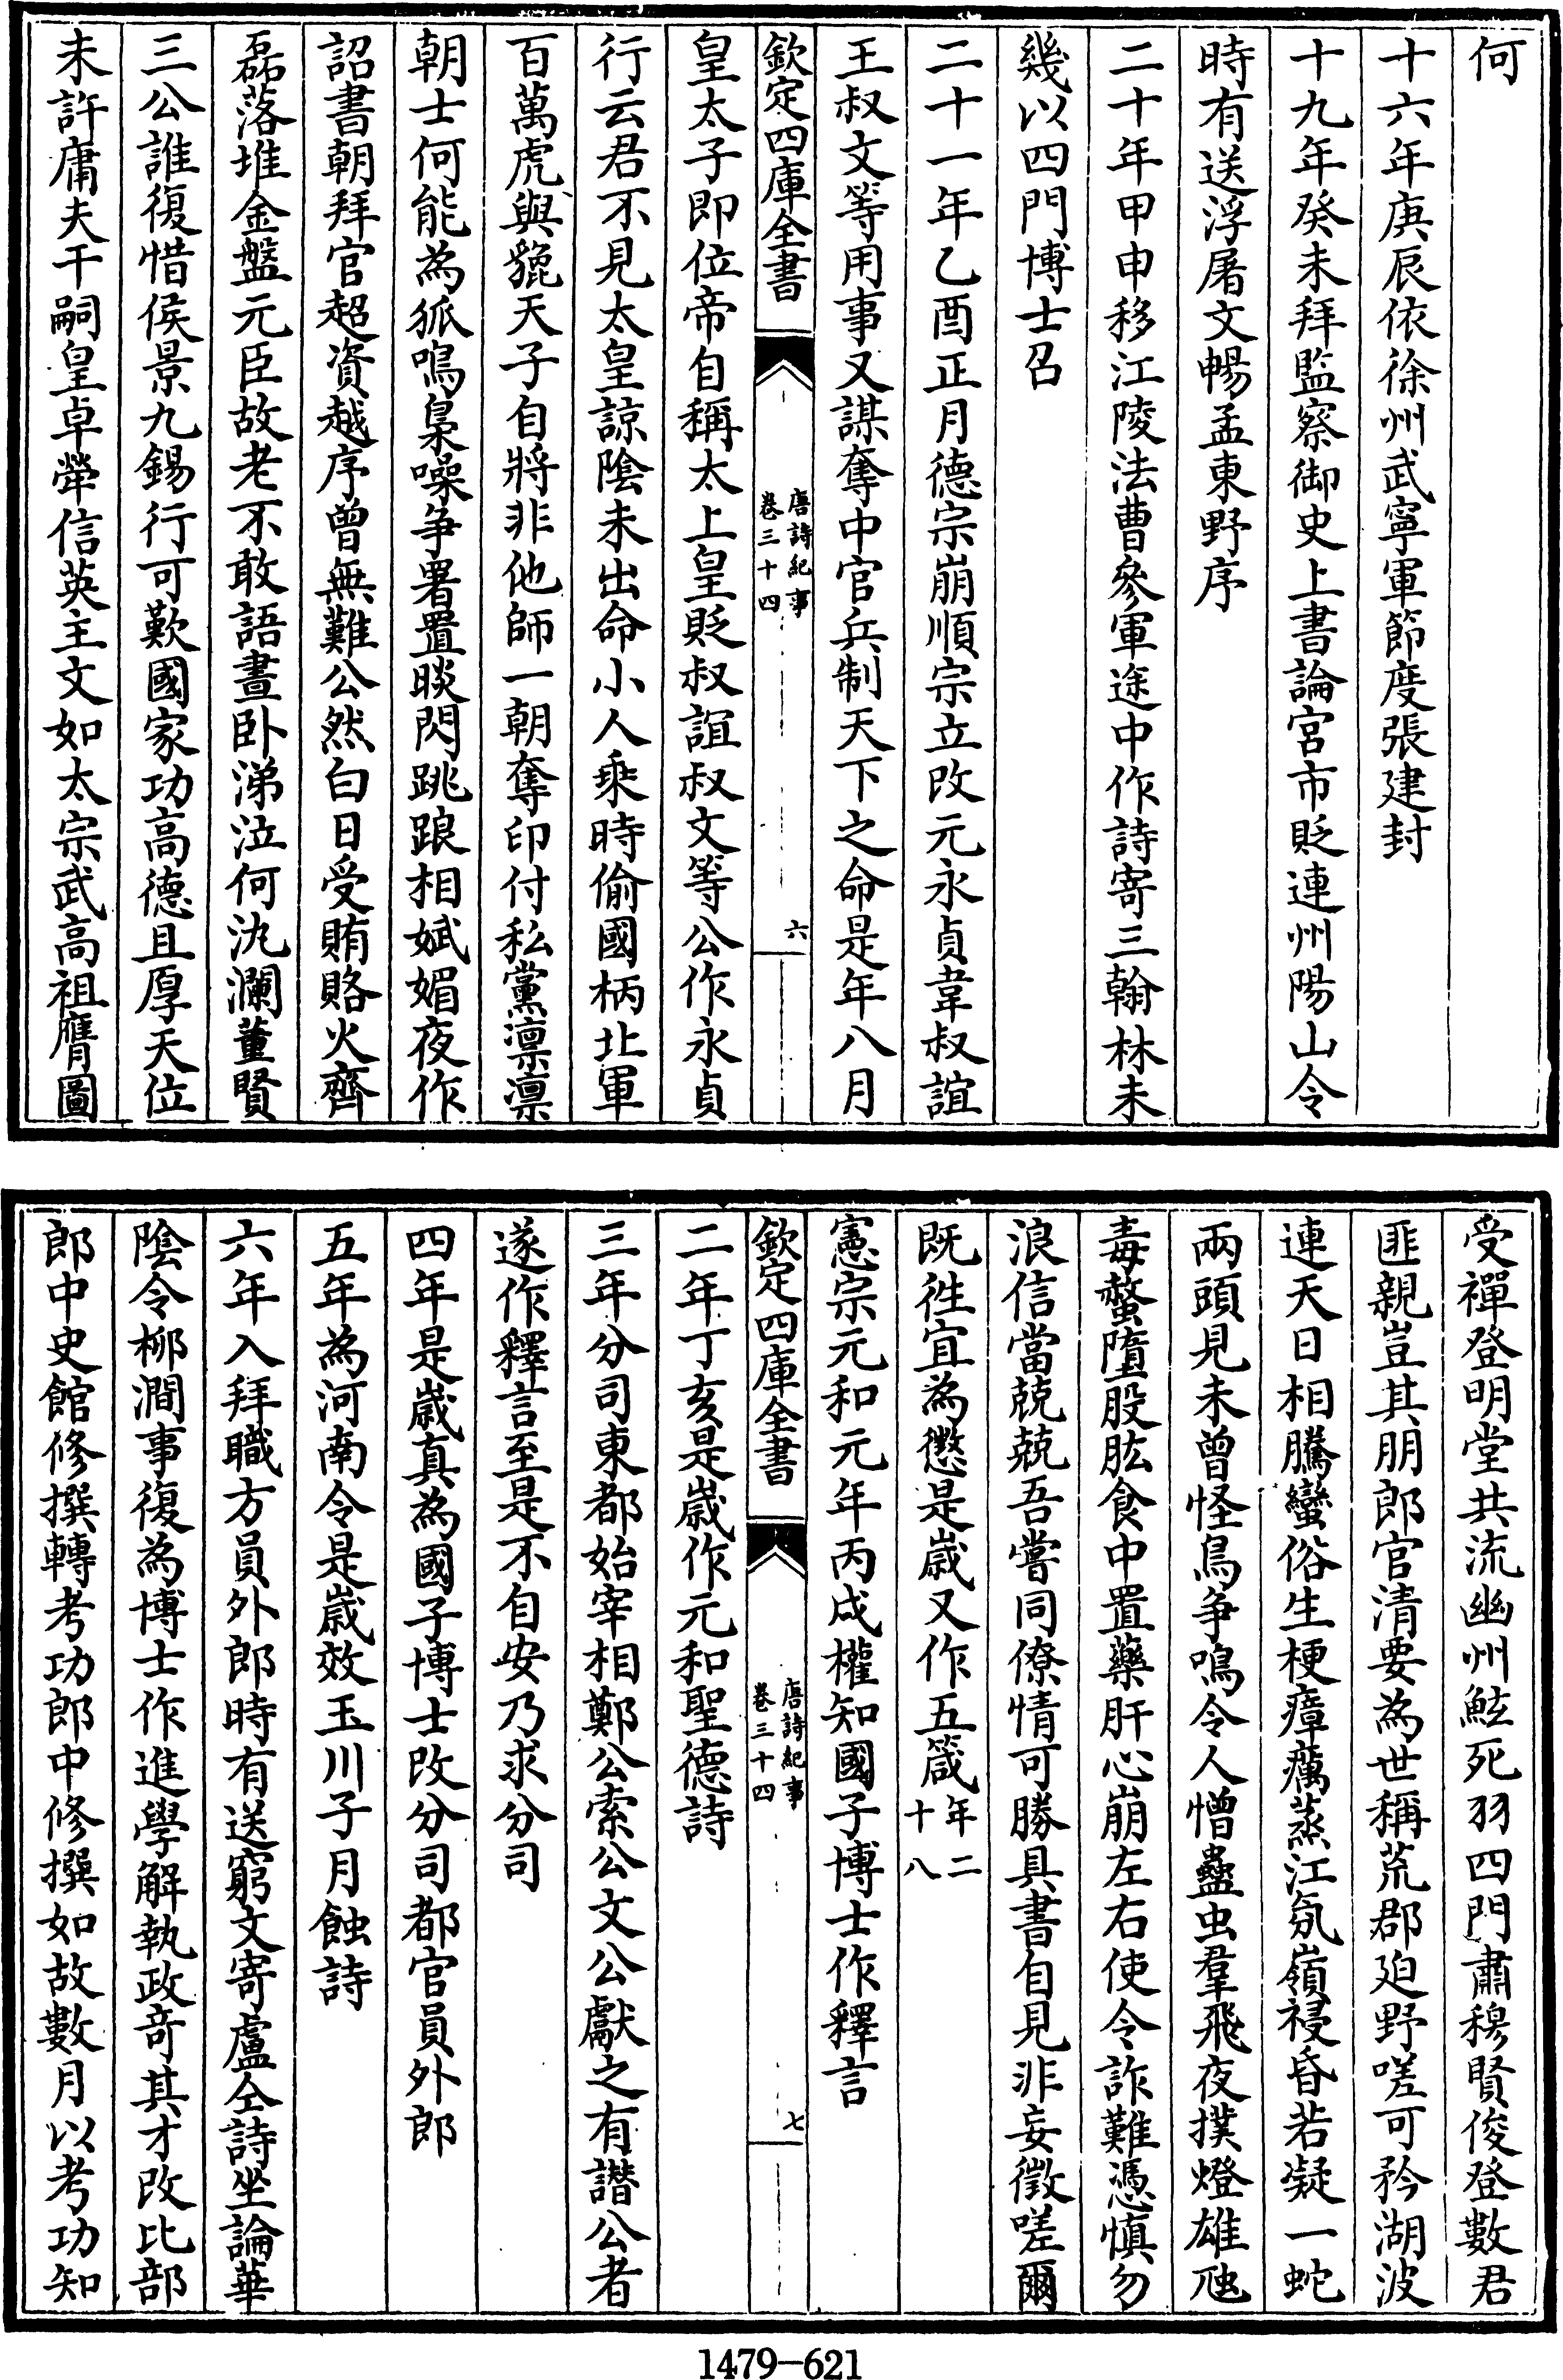 何
十六年庚辰依徐州武寧軍節度張建封
十九年癸未拜監察御史上書論宮市貶連州陽山令
時有送浮屠文暢孟東野序
二十年甲申移江陵法曹參軍途中作詩寄三翰林未
幾以四門博士召
二十一年乙酉正月德宗崩順宗立改元永貞韋叔誼
王叔文等用事又謀奪中官兵制天下之命是年八月
欽定四庫全書
唐詩紀事
卷三十四
六
皇太子即位帝自稱太上皇貶叔誼叔文等公作永貞
行云君不見太皇諒陰未出命小人乘時偷國柄北軍
百萬虎與貔天子自將非他師一朝奪印付私黨凛凛
朝士何能為狐鳴梟噪争署置睒閃跳踉相娬媚夜作
詔書朝拜官超資越序曾無難公然白日受賄賂火齊
磊落堆金盤元臣故老不敢語晝卧涕泣何汍瀾董賢
三公誰復惜侯景九錫行可歎國家功高德且厚天位
未許庸夫干嗣皇卓犖信英主文如太宗武高祖膺圖
受禪登明堂共流幽州鮌死羽四門肅穆賢俊登數君
匪親豈其朋郎官清要為世稱荒郡廹野嗟可矜湖波
連天日相騰蠻俗生梗瘴癘蒸江氛嶺祲昏若凝一蛇
兩頭見未曾怪鳥争鳴令人憎蠱虫羣飛夜撲燈雄虺
毒螫墮股肱食中置藥肝心崩左右使令詐難憑慎勿
浪信當兢兢吾嘗同僚情可勝具書自見非妄徵嗟爾
既徃宜為懲是歲又作五箴年二十八
憲宗元和元年丙戌權知國子博士作釋言
欽定四庫全書
唐詩紀事
卷三十四
七
二年丁亥是歲作元和聖德詩
三年分司東都始宰相鄭公索公文公獻之有譖公者
遂作釋言至是不自安乃求分司
四年是歲真為國子博士改分司都官員外郎
五年為河南令是歲效玉川子月蝕詩
六年入拜職方員外郎時有送窮文寄盧仝詩坐論華
陰令柳澗事復為博士作進學解執政奇其才改比部
郎中史館修撰轉考功郎中修撰如故數月以考功知
1479-621